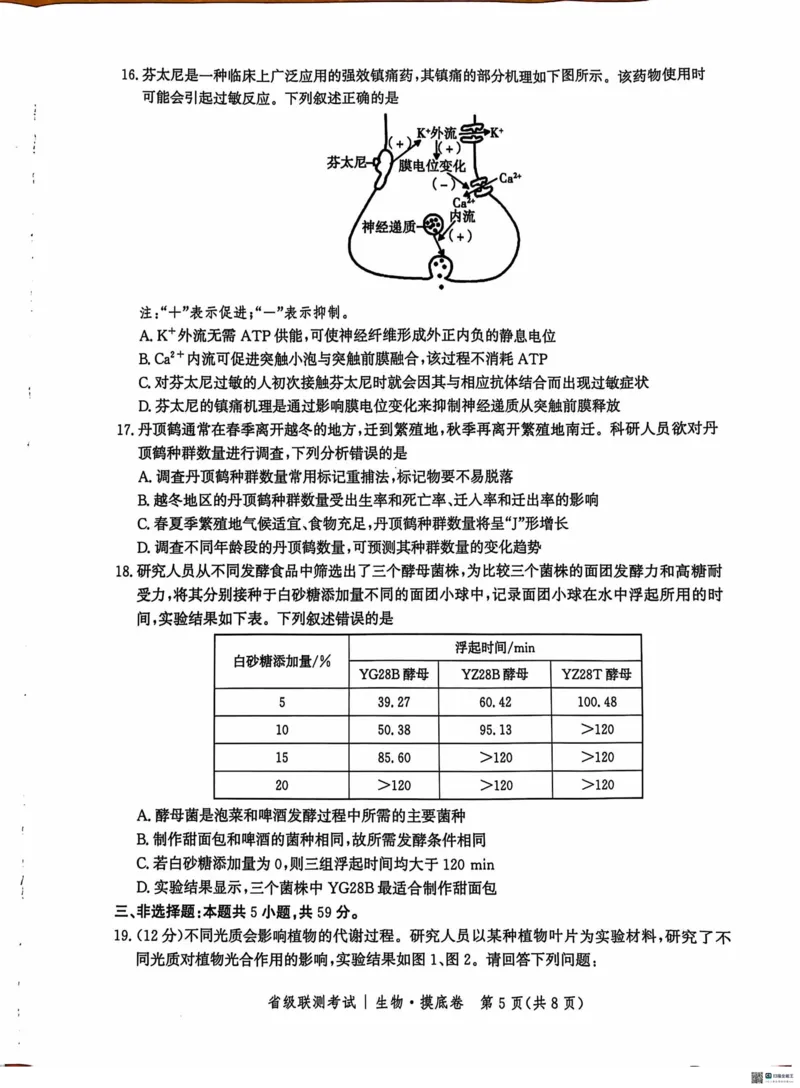 16.芬太尼是一种临床上广泛应用的强效镇痛药,其镇痛的部分机理如下图所示。该药物使用时
可能会引起过敏反应。下列叙述正确的是
K⁺外流
K⁺
(+)
(+)
芬太尼
膜电位变化
(-)
Ca²⁺
Ca²⁺
内流
神经递质
(+)
注:“+”表示促进;“-”表示抑制。
A.K⁺外流无需 ATP 供能,可使神经纤维形成外正内负的静息电位
B.Ca²⁺内流可促进突触小泡与突触前膜融合,该过程不消耗 ATP
C.对芬太尼过敏的人初次接触芬太尼时就会因其与相应抗体结合而出现过敏症状
D.芬太尼的镇痛机理是通过影响膜电位变化来抑制神经递质从突触前膜释放
17.丹顶鹤通常在春季离开越冬的地方,迁到繁殖地,秋季再离开繁殖地南迁。科研人员欲对丹
顶鹤种群数量进行调查,下列分析错误的是
A.调查丹顶鹤种群数量常用标记重捕法,标记物要不易脱落
B.越冬地区的丹顶鹤种群数量受出生率和死亡率、迁入率和迁出率的影响
C.春夏季繁殖地气候适宜、食物充足,丹顶鹤种群数量将呈“J”形增长
D.调查不同年龄段的丹顶鹤数量,可预测其种群数量的变化趋势
18.研究人员从不同发酵食品中筛选出了三个酵母菌株,为比较三个菌株的面团发酵力和高糖耐
受力,将其分别接种于白砂糖添加量不同的面团小球中,记录面团小球在水中浮起所用的时
间,实验结果如下表。下列叙述错误的是
白砂糖添加量/% 浮起时间/min
YG28B 酵母 YZ28B 酵母 YZ28T 酵母
5 39.27 60.42 100.48
10 50.38 95.13 >120
15 85.60 >120 >120
20 >120 >120 >120
A.酵母菌是泡菜和啤酒发酵过程中所需的主要菌种
B.制作甜面包和啤酒的菌种相同,故所需发酵条件相同
C.若白砂糖添加量为 0,则三组浮起时间均大于 120 min
D.实验结果显示,三个菌株中 YG28B 最适合制作甜面包
三、非选择题:本题共 5 小题,共 59 分。
19.(12 分)不同光质会影响植物的代谢过程。研究人员以某种植物叶片为实验材料,研究了不
同光质对植物光合作用的影响,实验结果如图 1、图 2。请回答下列问题:
省级联测考试 | 生物·摸底卷 第 5 页(共 8 页)